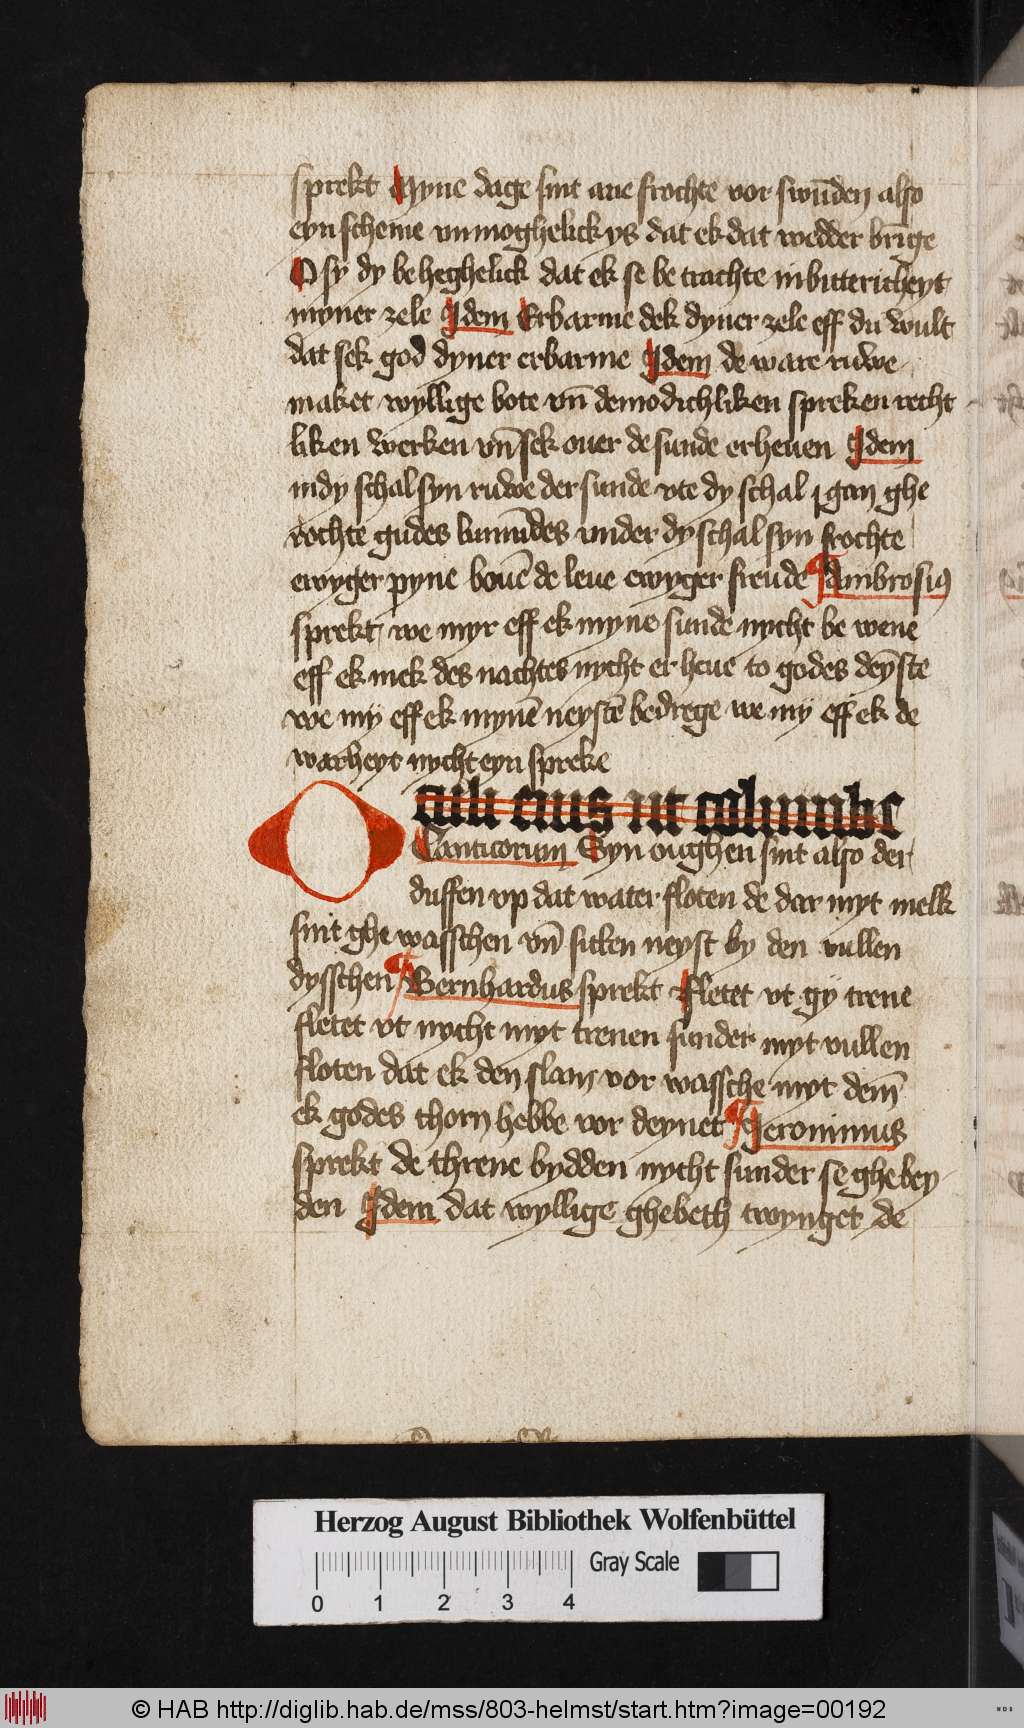 sprekt Myne dage sint ane frochte vor swūden also
eyn scheme vnmoghelick ys dat ek dat wedder brīge
O sy dy beheghelick dat ek se be trachte in bittericheyt
myner zele Idem Erbarme dek dyner zele eff du wult
dat sek god dyner erbarme Idem de ware ruwe
maket wyllige bote vn̄ demodichliken spreken recht
liken werken vn̄ sek ouer de sunde erheuen Idem
in dy schal syn ruwe der sunde vte dy schal gan ghe
rochte gudes lumūdes vnder dy schal syn frochte
ewyger pyne bouē de leue ewyger freude Ambrosius
sprekt we myr eff ek myne sunde nycht be wene
eff ek mek des nachtes nycht er heue to godes deyste
we my eff ek mynē neystē bedrege we my eff ek de
warheyt nycht eyn spreke
Oculi eius ut columbe
Canticorum Syn oughen sint also der
duffen vp dat water floten de dar myt melk
sint ghe wasschen vn̄ sitten neyst by den vullen
dysschen Bernhardus sprekt Fletet vt gy trene
fletet vt nycht myt trenen sunder myt vullen
floten dat ek den slam vor wassche myt dem̄
ek godes thorn hebbe vor deynet Jeronimus
sprekt de threne bydden nycht sunder se ghebey
den Idem dat wyllige ghebeth twynget de
Herzog August Bibliothek Wolfenbüttel
Gray Scale
0 1 2 3 4
© HAB http://diglib.hab.de/mss/803-helmst/start.htm?image=00192